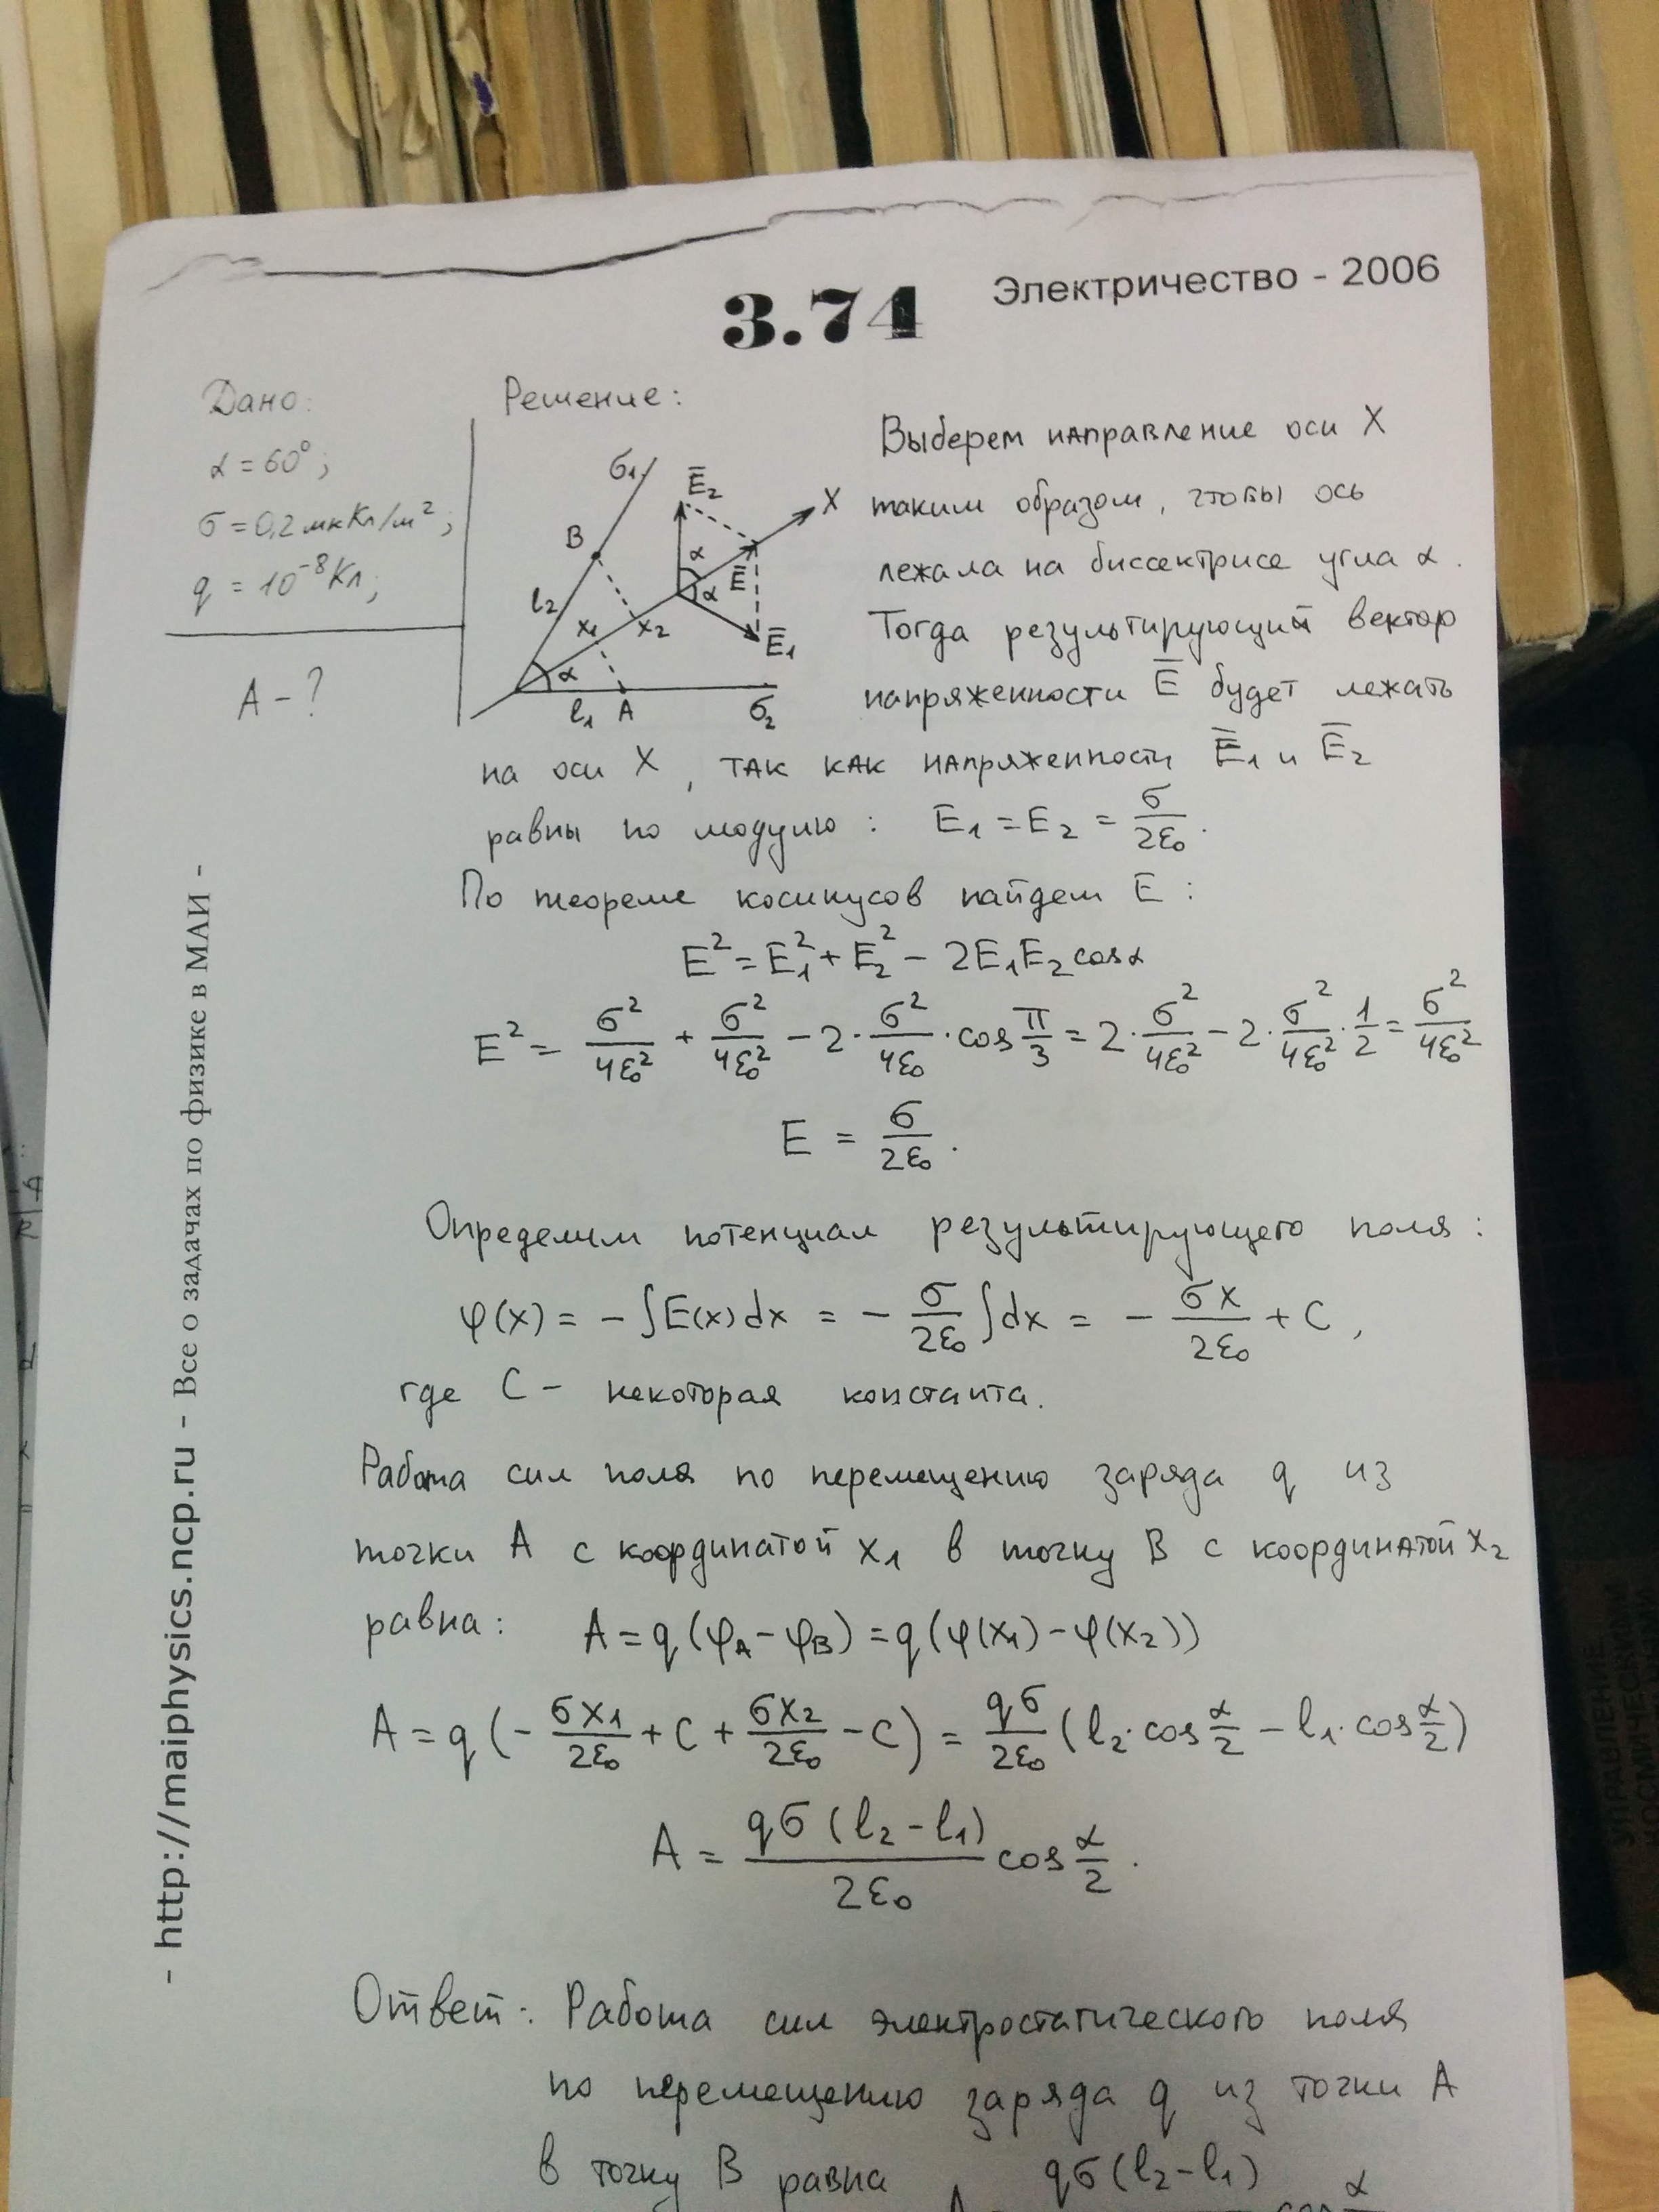 3.74
Электричество - 2006
Дано:
α = 60°;
σ = 0,2 мкКл/м²;
q = 10⁻⁸ Кл;
A - ?
Решение:
σ₁
B
l₂
x₁
x₂
α
l₁
A
σ₂
E̅₂
α
α
E̅
E̅₁
X
Выберем направление оси X
таким образом, чтобы ось
лежала на биссектрисе угла α.
Тогда результирующий вектор
напряженности E̅ будет лежать
на оси X, так как напряженности E̅₁ и E̅₂
равны по модулю: E₁ = E₂ = σ/2ε₀.
По теореме косинусов найдем E:
E² = E₁² + E₂² - 2E₁E₂cosα
E² = σ²/4ε₀² + σ²/4ε₀² - 2·σ²/4ε₀·cos π/3 = 2·σ²/4ε₀² - 2·σ²/4ε₀²·1/2 = σ²/4ε₀²
E = σ/2ε₀.
Определим потенциал результирующего поля:
φ(x) = -∫E(x)dx = -σ/2ε₀∫dx = -σx/2ε₀ + C,
где C - некоторая константа.
Работа сил поля по перемещению заряда q из
точки A с координатой x₁ в точку B с координатой x₂
равна: A = q(φA - φB) = q(φ(x₁) - φ(x₂))
A = q(-σx₁/2ε₀ + C + σx₂/2ε₀ - C) = qσ/2ε₀(l₂·cos α/2 - l₁·cos α/2)
A = qσ(l₂-l₁)/2ε₀ cos α/2.
Ответ: Работа сил электростатического поля
по перемещению заряда q из точки A
в точку B равна qσ(l₂-l₁) α
- http://maiphysics.ncp.ru - Все о задачах по физике в МАИ -
УПРАВЛЕНИЕ
КОСМИЧЕСКИМ